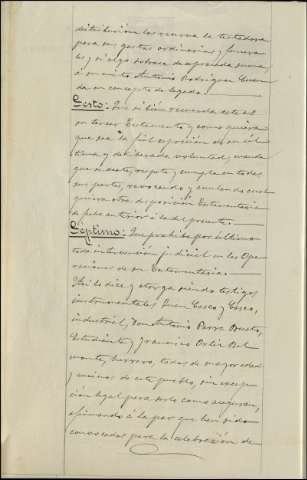 distribución los reserva la testadora
para sus gastos ordinarios y funera
les y si algo sobrase de aprenda pena
á su nieto Antonio Rodriguez
da en concepto de legado.
Sexto: Que si bien recuerda este es
su tercer testamento y como quiera
que sea la fiel expresión de su úl
tima y deliberada voluntad, manda
que se este, respete y cumpla en todas
sus partes, revocando y anulando cual
quiera otra disposición testamentaria
de fecha anterior á la del presente.
Séptimo: Que prohibe por último
toda intervención judicial en las ope
raciones de su testamentaría.
Así lo dice y otorga siendo testigos
instrumentales, Juan Cosco y Cosco,
industrial, Don Antonio Parra
estudiante y Francisco Ortiz Bel
monte, herrero, todos de mayor edad
y vecinos de este pueblo, sin excep
ción legal para serlo como aseguran,
afirmando á la par que han sido
convocados para la celebración de